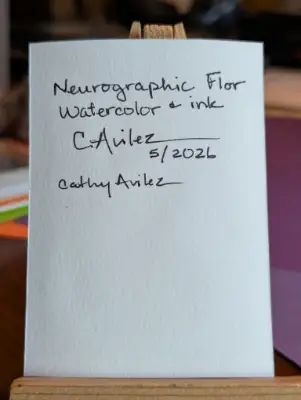 Neurographic Flor
Watercolor & ink
C. Avilez
5/2026
Cathy Avilez